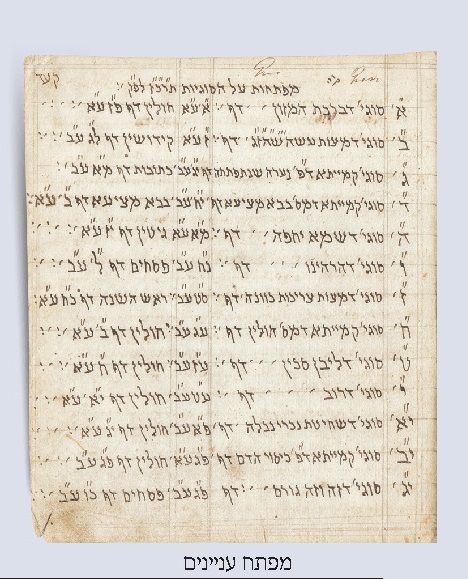 קעד
מפתחות על הסוגיות
א׳ סוגי׳ דברכת המזון דף א׳ ע״א חולין דף פ״ז ע״א
ב׳ סוגי׳ דמצות עשה דף ע״א קידושין דף ל״ג ע״ב
ג׳ סוגי׳ קמייתא דפ׳ נערה שנתפתתה דף ע״ב כתובות דף מ״א ע״ב
ד׳ סוגי׳ קמייתא דמס׳ בבא מציעא דף י״ח ע״ב בבא מציעא דף ב׳ ע״א
ה׳ סוגי׳ דשמא יחפה דף מ״א ע״א גיטין דף ע״א
ו׳ סוגי׳ דהרהינו דף נ״ח ע״ב פסחים דף ל׳ ע״ב
ז׳ סוגי׳ דמצות צריכות כוונה דף ס״ט ע״ב ראש השנה דף כ״ח ע״א
ח׳ סוגי׳ קמייתא דמס׳ חולין דף ע״ג ע״ב חולין דף ב׳ ע״א
ט׳ סוגי׳ דליבן סכין דף ע״ז ע״ב חולין דף ח׳ ע״א
י׳ סוגי׳ דרוב דף ע״ט ע״ב חולין דף י״א ע״א
י״א סוגי׳ דשחיטת נכרי נבלה דף פ״א ע״ב חולין דף י״ג ע״א
י״ב סוגי׳ קמייתא דפ׳ כיסוי הדם דף פ״ג ע״א חולין דף פ״ג ע״ב
י״ג סוגי׳ דזה וזה גורם דף פ״ג ע״ב פסחים דף כ״ו ע״ב
מפתח עניינים